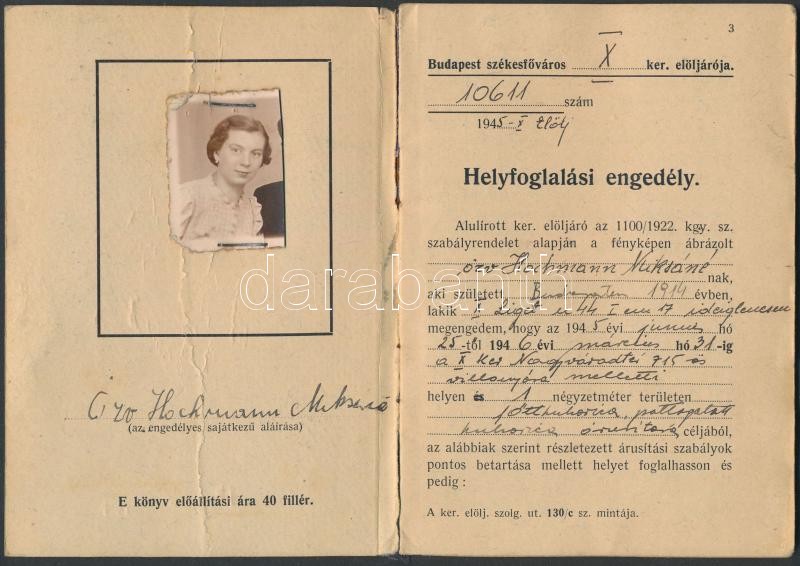 özv Hochmann Miksáné
(az engedélyes sajátkezű aláírása)
E könyv előállítási ára 40 fillér.
3
Budapest székesfőváros X ker. elöljárója.
10611 szám
1945-X Elölj
Helyfoglalási engedély.
Alulírott ker. elöljáró az 1100/1922. kgy. sz.
szabályrendelet alapján a fényképen ábrázolt
özv Hochmann Miksáné nak,
aki született Budapesten 1914 évben,
lakik X Liget u 44 I em 17 ideiglenesen
megengedem, hogy az 1945 évi junius hó
25-től 1946 évi március hó 31-ig
a X Ker Nagyváradtér 715 és
villanyóra melletti
helyen és 1 négyzetméter területen
főttkukorica, pattogatott
kukorica árusitása céljából,
az alábbiak szerint részletezett árusítási szabályok
pontos betartása mellett helyet foglalhasson és
pedig :
A ker. elölj. szolg. ut. 130/c sz. mintája.
darabanth.com